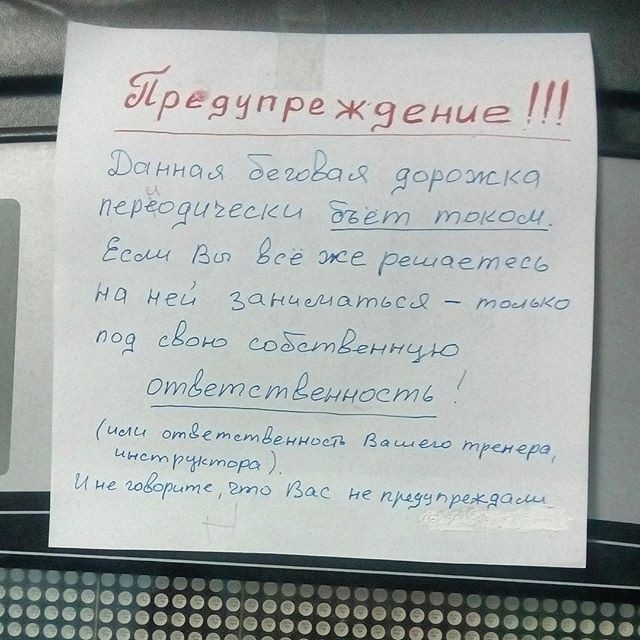 Предупреждение!!!
Данная беговая дорожка
периодически бъёт током.
Если Вы всё же решаетесь
на ней заниматься – только
под свою собственную
ответственность!
(или ответственность Вашего тренера,
инструктора).
И не говорите, что Вас не предупреждали